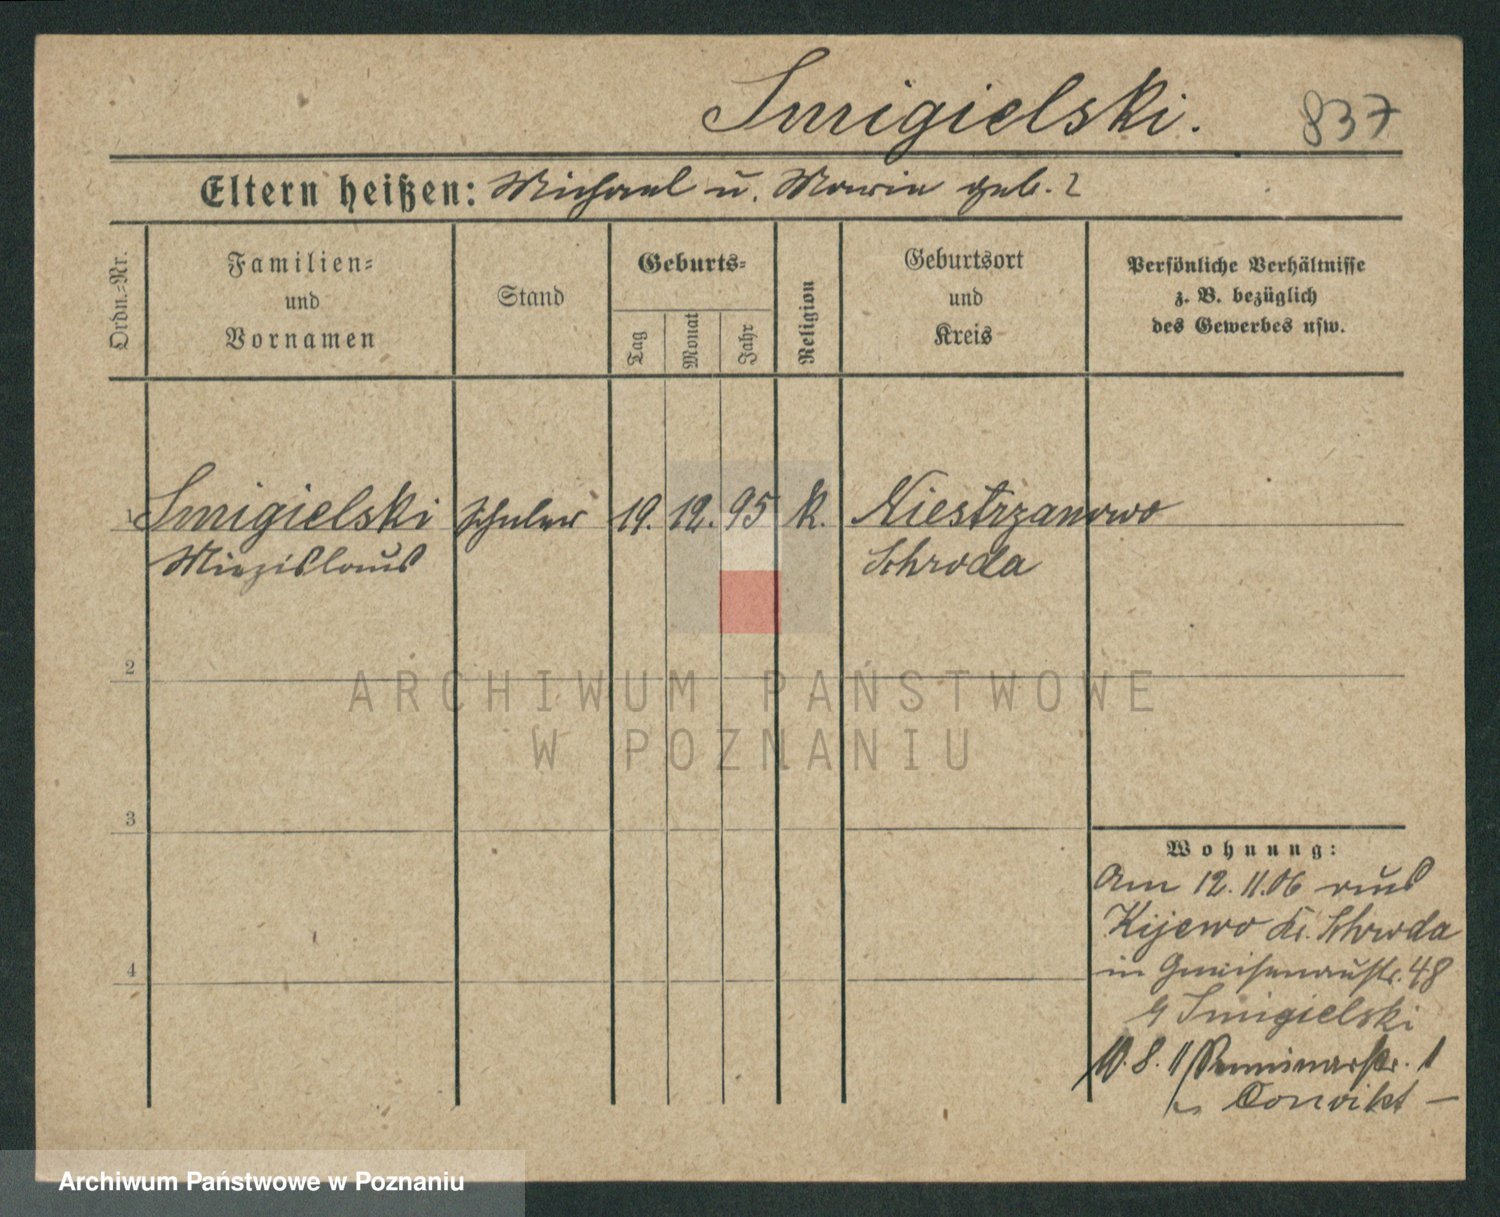 Smigielski.
837
Eltern heißen: Michael u. Maria geb. ?
Ordn.=Nr.
Familien=
und
Vornamen
Stand
Geburts=
Tag
Monat
Jahr
Religion
Geburtsort
und
Kreis
Persönliche Verhältnisse
z. B. bezüglich
des Gewerbes usw.
1 Smigielski Schüler 19. 12. 95 k. Niestrzanowo
Miezislaus Schroda
2
ARCHIWUM PAŃSTWOWE
W POZNANIU
3
Wohnung:
Am 12. 11. 06 aus
Kijewo Kr. Schroda
4
in Gneisenaustr. 48
Smigielski
10. 8. 11 Seminarstr. 1
Convikt –
Archiwum Państwowe w Poznaniu